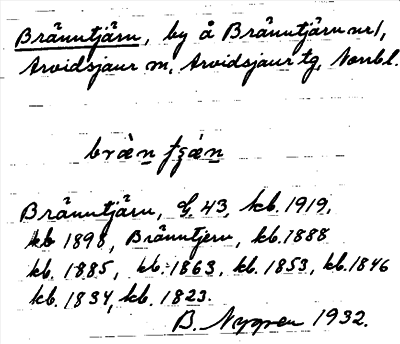 Brännträsk, by å Brännträsk nr 1,
Arvidsjaur sn, Arvidsjaur tg, Norrbl.
Brännträsk, G. 43, kb. 1919,
kb 1898, Bränntjern, kb. 1888
kb. 1885, kb. 1863, kb. 1853, kb. 1846
kb. 1834, kb. 1823.
B. Nygren 1932.